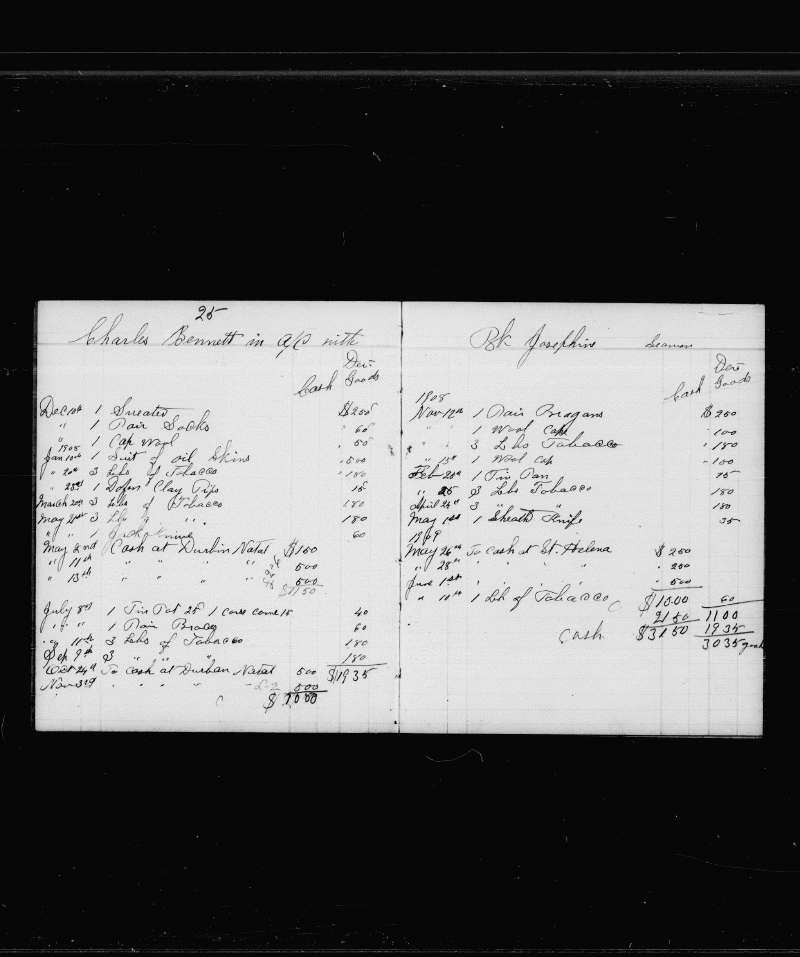 25
Charles Bennett in a/c with
Cash Goods
Dec 10th 1 Sweater $2 00
" 1 Pair Socks 60
" 1 Cap Wool 50
1908
Jan 10th 1 Suit of oil Skins 5 00
" 20th 3 Lbs of Tobacco 1 80
" 28th 1 Dozen Clay Pips 15
March 20th 3 Lbs of Tobacco 1 80
May 21st 3 Lbs of " 1 80
" " 1 60
May 2nd Cash at Durbin Natal $1 50
" 11th " " " " 5 00
" 13th " " " " 5 00
$11 50
July 8th 1 Tin Pot 25 1 15 40
" " 1 Pair Braces 60
" 11th 3 Lbs of Tobacco 1 80
Sep 9th 3 " " " 1 80
Oct 24th To Cash at Durban Natal 5 00 $19 35
Nov 3rd " " " " 5 00
$ 10 00
Bk Josephine Seaman
Cash Goods
1908
Nov 12th 1 Pair Brogans $ 2 50
" 1 Wool Cap 1 00
" 3 Lbs Tobacco 1 80
" 15th 1 Wool Cap 1 00
Feb 20th 1 Tin Pan 75
" 25 3 Lbs Tobacco 1 80
April 26th 3 " " 1 80
May 1st 1 Sheath Knife 35
1909
May 26th To Cash at St. Helena $ 2 50
" 28th " " " 2 50
June 1st " " " 5 00
" 10th 1 Lb of Tobacco $10.00 60
21 50 11 00
Cash $31 50 19 35
30 35 goods